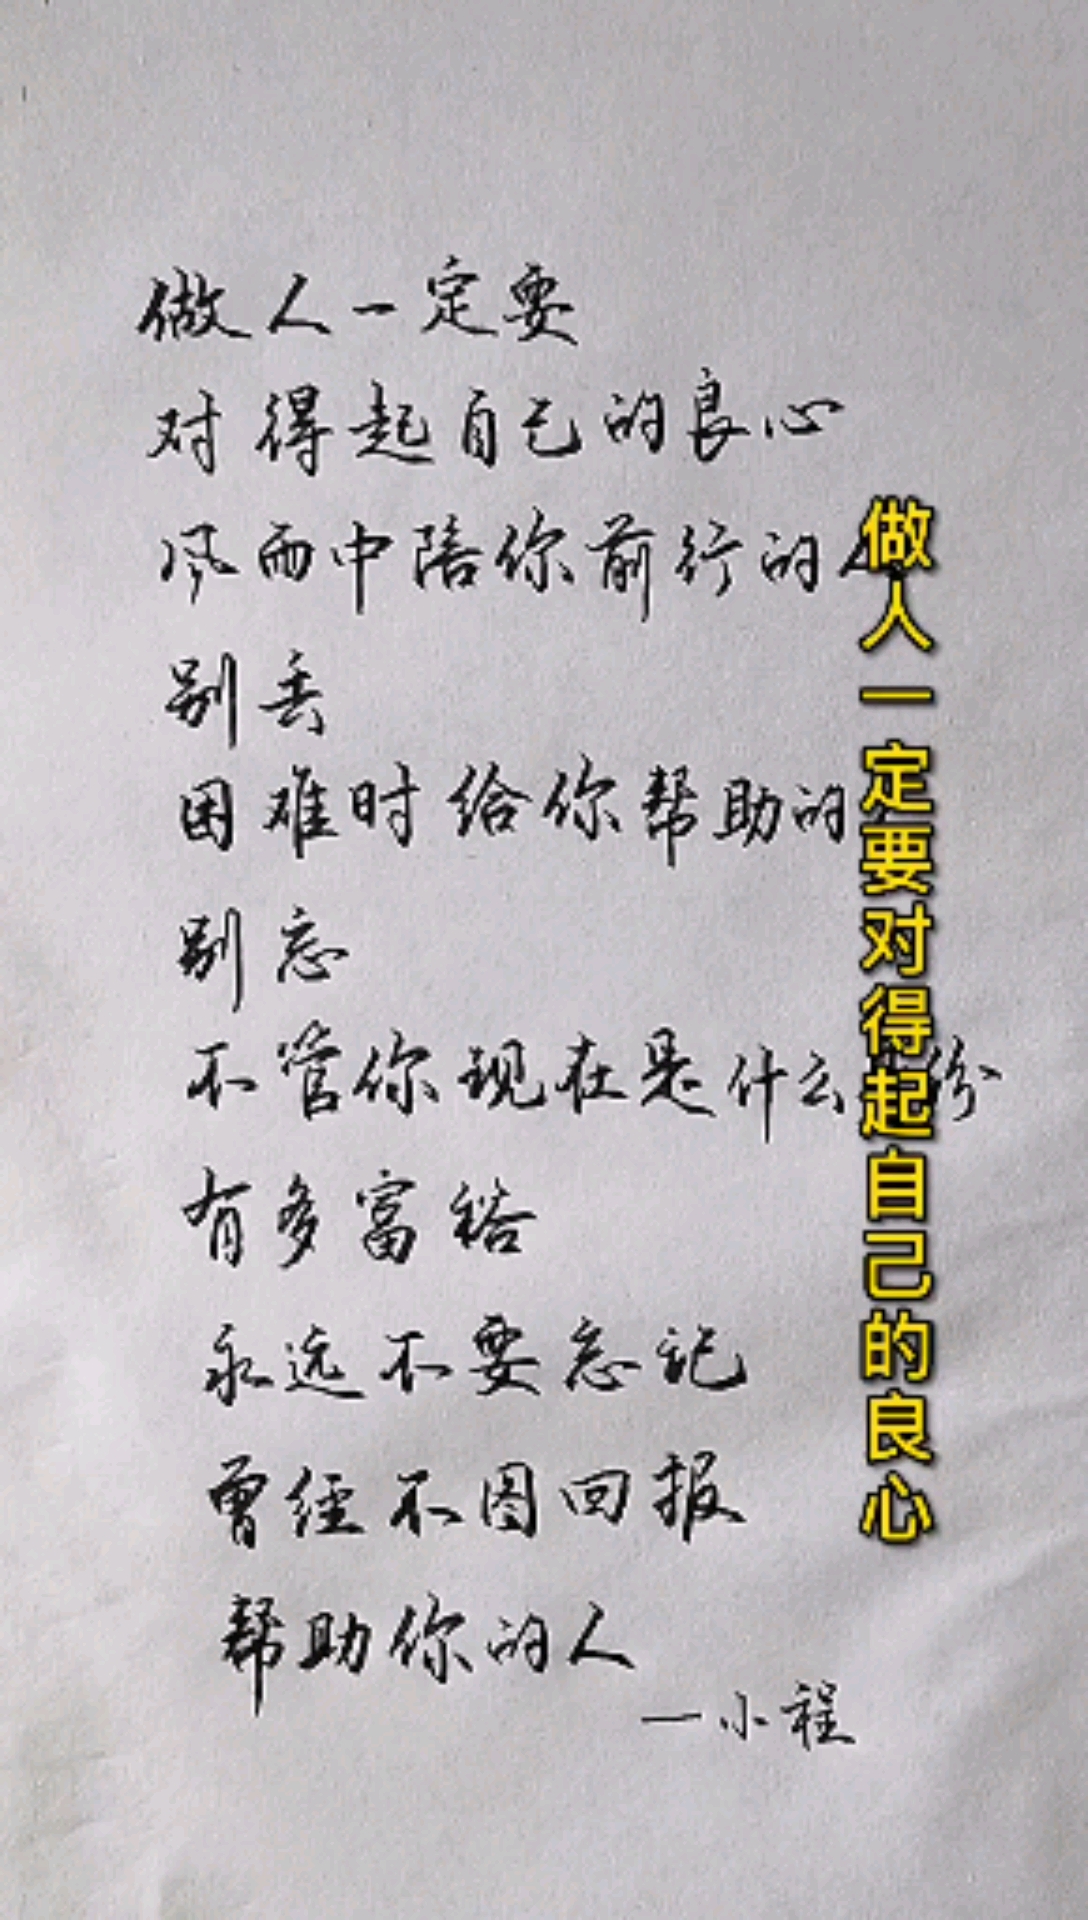 做人一定要
对得起自己的良心
风雨中陪你前行的人
别丢
困难时给你帮助的
别忘
不管你现在是什么份
有多富裕
永远不要忘记
曾经不图回报
帮助你的人
一小程
做人一定要对得起自己的良心